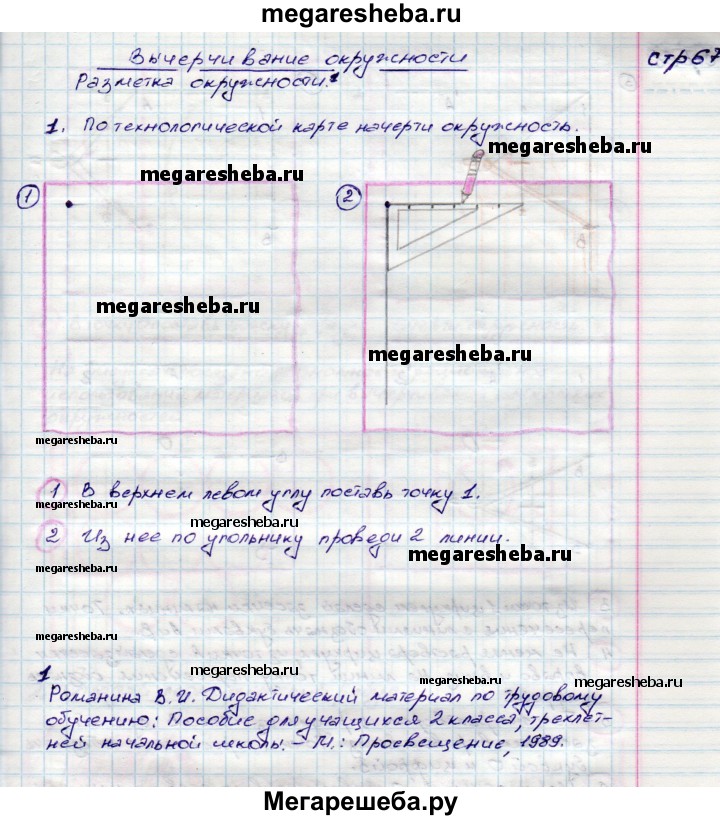 megaresheba.ru
Вычерчивание окружности
стр67
Разметка окружности.¹
1. По технологической карте начерти окружность.
megaresheba.ru
megaresheba.ru
1
2
megaresheba.ru
megaresheba.ru
megaresheba.ru
megaresheba.ru
1 В верхнем левом углу поставь точку 1.
megaresheba.ru
2 Из нее по угольнику проведи 2 линии.
megaresheba.ru
megaresheba.ru
megaresheba.ru
megaresheba.ru
1
megaresheba.ru
megaresheba.ru
Романина В.И. Дидактический материал по трудовому
обучению: Пособие для учащихся 2 класса, трехлет-
ней начальной школы. – М.: Просвещение, 1989.
megaresheba.ru
megaresheba.ru
Мегарешеба.ру